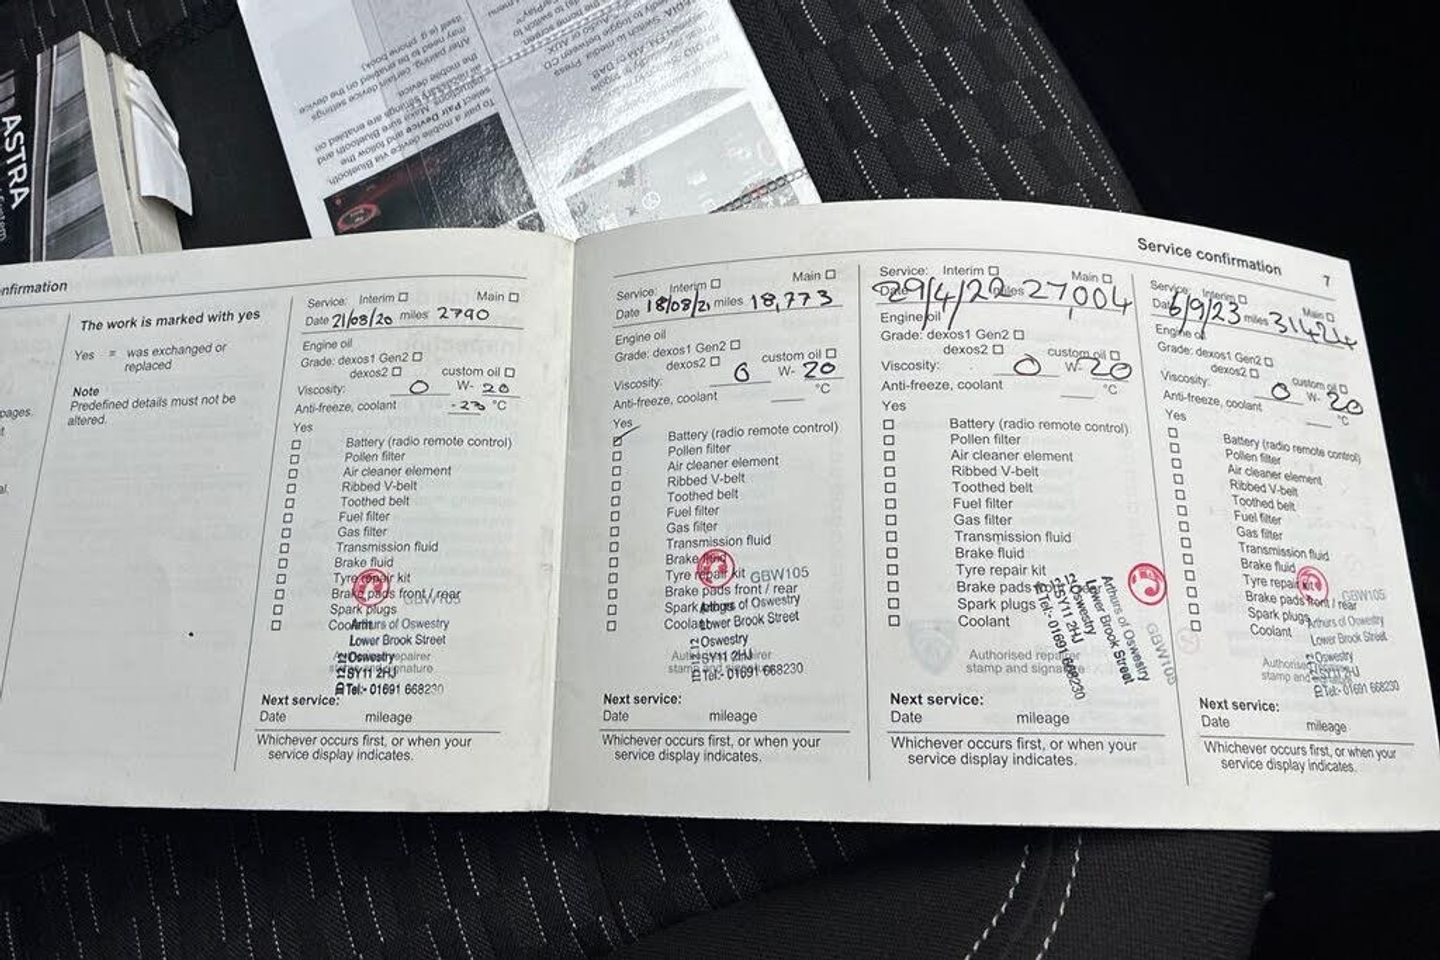 ASTRA
To pair a mobile device via Bluetooth,
select Pair Device and follow the
instructions. Make sure Bluetooth and
all necessary settings are enabled on
the mobile device.
After pairing, certain device settings
may need to be enabled on the device
itself (e.g. phone book).
nfirmation
pages.
The work is marked with yes
Yes = was exchanged or
replaced
Note
Predefined details must not be
altered.
Service: Interim ☐ Main ☐
Date 21/08/20 miles 2790
Engine oil
Grade: dexos1 Gen2 ☐
dexos2 ☐ custom oil ☐
Viscosity: 0 W- 20
Anti-freeze, coolant -23 °C
Yes
☐ Battery (radio remote control)
☐ Pollen filter
☐ Air cleaner element
☐ Ribbed V-belt
☐ Toothed belt
☐ Fuel filter
☐ Gas filter
☐ Transmission fluid
☐ Brake fluid
☐ Tyre repair kit
☐ Brake pads front / rear
☐ Spark plugs
☐ Coolant
GBW105
Arthurs of Oswestry
Lower Brook Street
Oswestry
SY11 2HJ
Tel:- 01691 668230
Authorised repairer
stamp and signature
Next service:
Date mileage
Whichever occurs first, or when your
service display indicates.
Service: Interim ☐ Main ☐
Date 18/08/21 miles 18,773
Engine oil
Grade: dexos1 Gen2 ☐
dexos2 ☐ custom oil ☐
Viscosity: 0 W- 20
Anti-freeze, coolant °C
Yes
☑ Battery (radio remote control)
☐ Pollen filter
☐ Air cleaner element
☐ Ribbed V-belt
☐ Toothed belt
☐ Fuel filter
☐ Gas filter
☐ Transmission fluid
☐ Brake fluid
☐ Tyre repair kit
☐ Brake pads front / rear
☐ Spark plugs
☐ Coolant
GBW105
Arthurs of Oswestry
Lower Brook Street
Oswestry
SY11 2HJ
Tel:- 01691 668230
Authorised repairer
stamp and signature
Next service:
Date mileage
Whichever occurs first, or when your
service display indicates.
Service confirmation 7
Service: Interim ☐ Main ☐
Date 29/4/22 miles 27,004
Engine oil
Grade: dexos1 Gen2 ☐
dexos2 ☐ custom oil ☐
Viscosity: 0 W- 20
Anti-freeze, coolant °C
Yes
☐ Battery (radio remote control)
☐ Pollen filter
☐ Air cleaner element
☐ Ribbed V-belt
☐ Toothed belt
☐ Fuel filter
☐ Gas filter
☐ Transmission fluid
☐ Brake fluid
☐ Tyre repair kit
☐ Brake pads
☐ Spark plugs
☐ Coolant
GBW105
Arthurs of Oswestry
Lower Brook Street
Oswestry
SY11 2HJ
Tel:- 01691 668230
Authorised repairer
stamp and signature
Next service:
Date mileage
Whichever occurs first, or when your
service display indicates.
Service: Interim ☐ Main ☐
Date 6/9/23 miles 31424
Engine oil
Grade: dexos1 Gen2 ☐
dexos2 ☐ custom oil ☐
Viscosity: 0 W- 20
Anti-freeze, coolant °C
Yes
☐ Battery (radio remote control)
☐ Pollen filter
☐ Air cleaner element
☐ Ribbed V-belt
☐ Toothed belt
☐ Fuel filter
☐ Gas filter
☐ Transmission fluid
☐ Brake fluid
☐ Tyre repair kit
☐ Brake pads front / rear
☐ Spark plugs
☐ Coolant
GBW105
Arthurs of Oswestry
Lower Brook Street
Oswestry
SY11 2HJ
Tel:- 01691 668230
Authorised
stamp and
Next service:
Date mileage
Whichever occurs first, or when your
service display indicates.